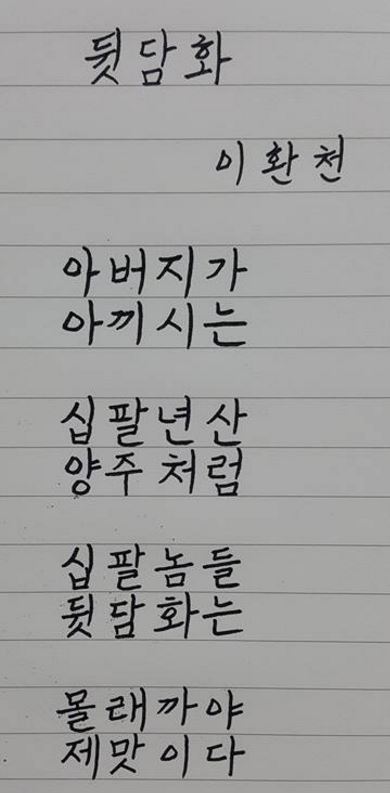 뒷담화
이환천
아버지가
아끼시는
십팔년산
양주처럼
십팔놈들
뒷담화는
몰래까야
제맛이다